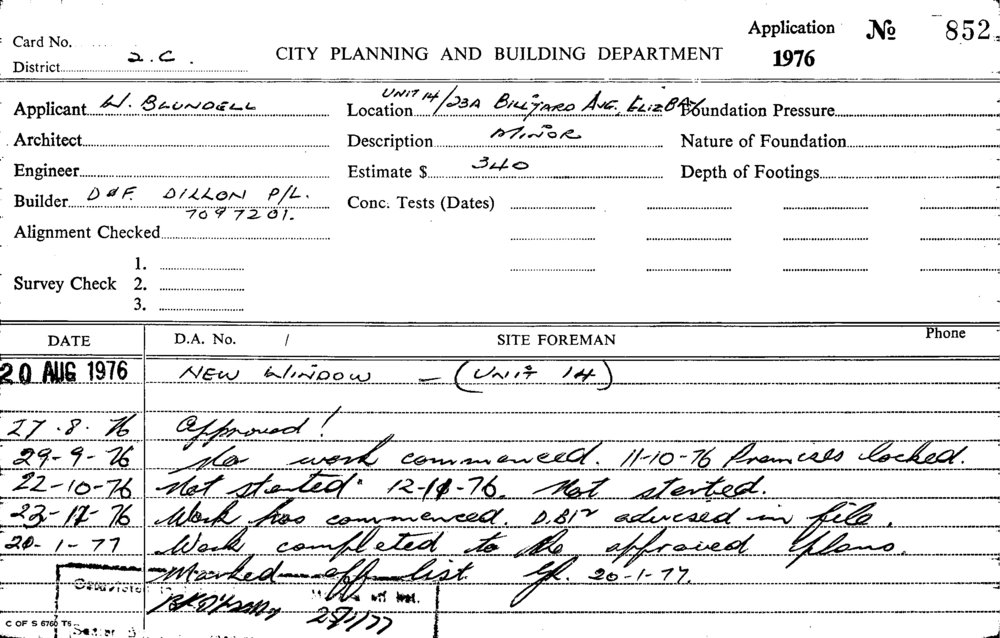 Card No.
Application No 852
District 2.C. CITY PLANNING AND BUILDING DEPARTMENT 1976
Applicant W. BLUNDELL Location UNIT 14/23A BILLYARD AVE, ELIZ BAY Foundation Pressure
Architect Description MINOR Nature of Foundation
Engineer Estimate $ 340 Depth of Footings
Builder D & F. DILLON P/L. Conc. Tests (Dates)
7097201.
Alignment Checked
1.
Survey Check 2.
3.
DATE D.A. No. / SITE FOREMAN Phone
20 AUG 1976 NEW WINDOW - (UNIT 14)
27.8.76 Approved!
29-9-76 No work commenced. 11-10-76 Premises locked.
22-10-76 Not started. 12-11-76. Not started.
23-11-76 Work has commenced. D.B.I. advised in file.
20-1-77 Work completed to the approved plans.
Marked off list. 20-1-77.
C OF S 6760 T6